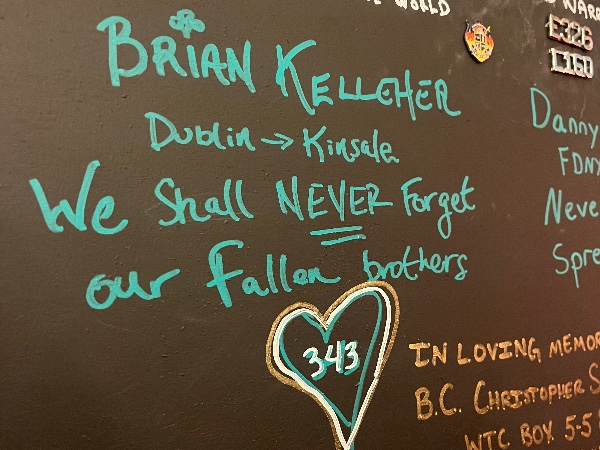 WORLD
BRIAN KELLEHER
Dublin → Kinsale
We Shall NEVER Forget
our fallen brothers
343
E326
L160
Danny
FDNY
IN LOVING MEMOR
B.C. CHRISTOPHER S
WTC BOX 5-5